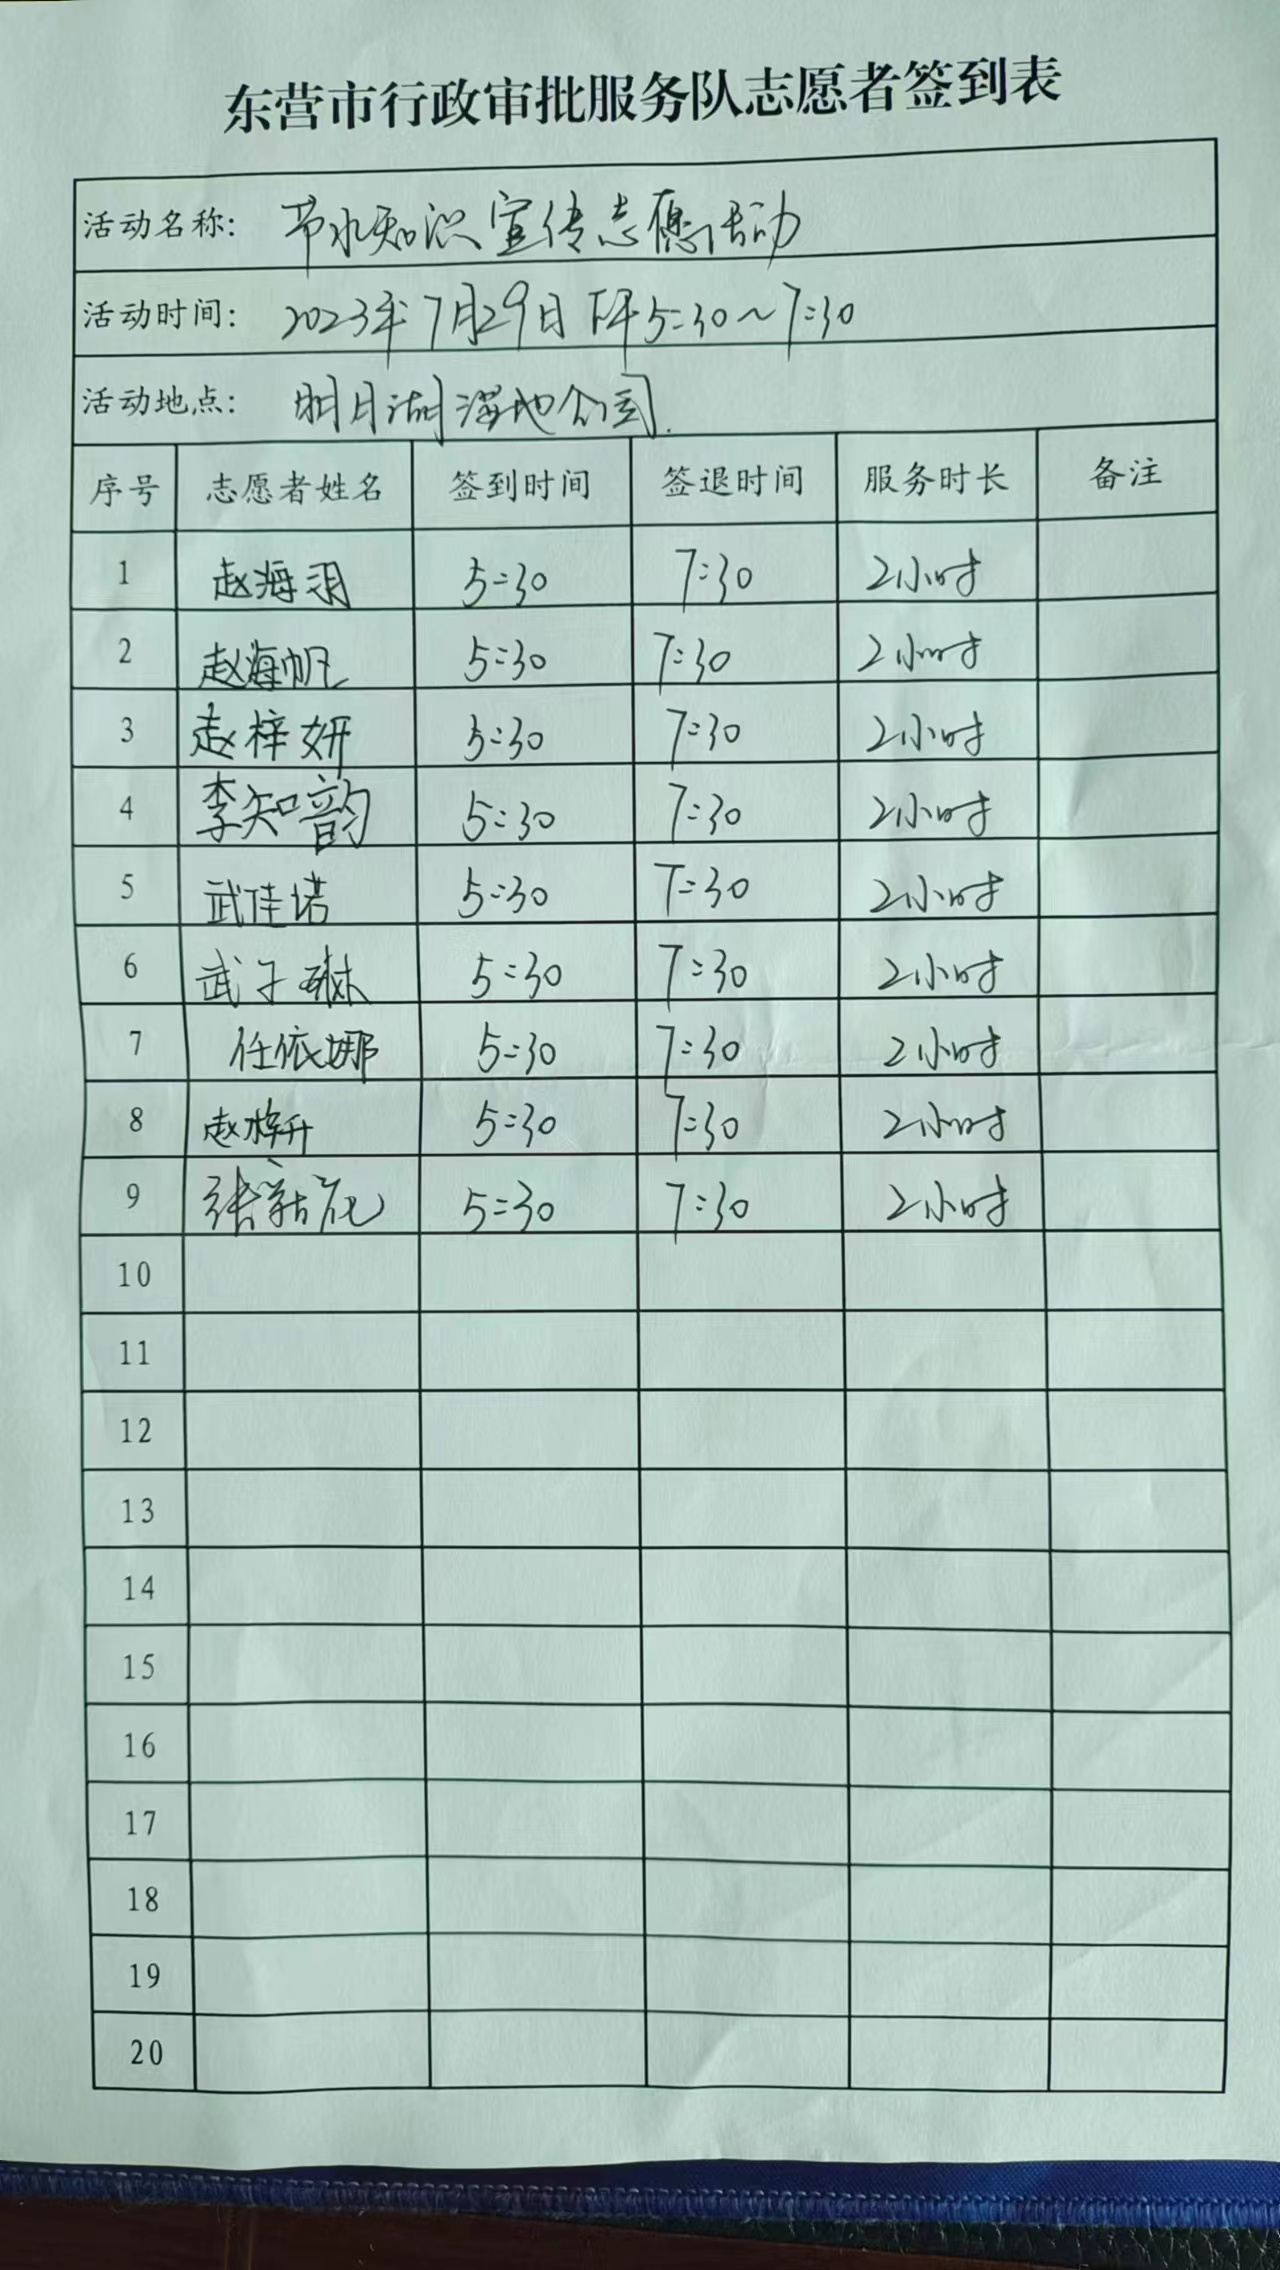 东营市行政审批服务队志愿者签到表
活动名称: 节水知识宣传志愿活动
活动时间: 2023年7月29日下午5:30~7:30
活动地点: 明月湖湿地公园.
序号 志愿者姓名 签到时间 签退时间 服务时长 备注
1 赵海羽 5:30 7:30 2小时
2 赵海帆 5:30 7:30 2小时
3 赵梓妍 5:30 7:30 2小时
4 李知韵 5:30 7:30 2小时
5 武佳诺 5:30 7:30 2小时
6 武子琳 5:30 7:30 2小时
7 任依娜 5:30 7:30 2小时
8 赵梓升 5:30 7:30 2小时
9 张 5:30 7:30 2小时
10
11
12
13
14
15
16
17
18
19
20